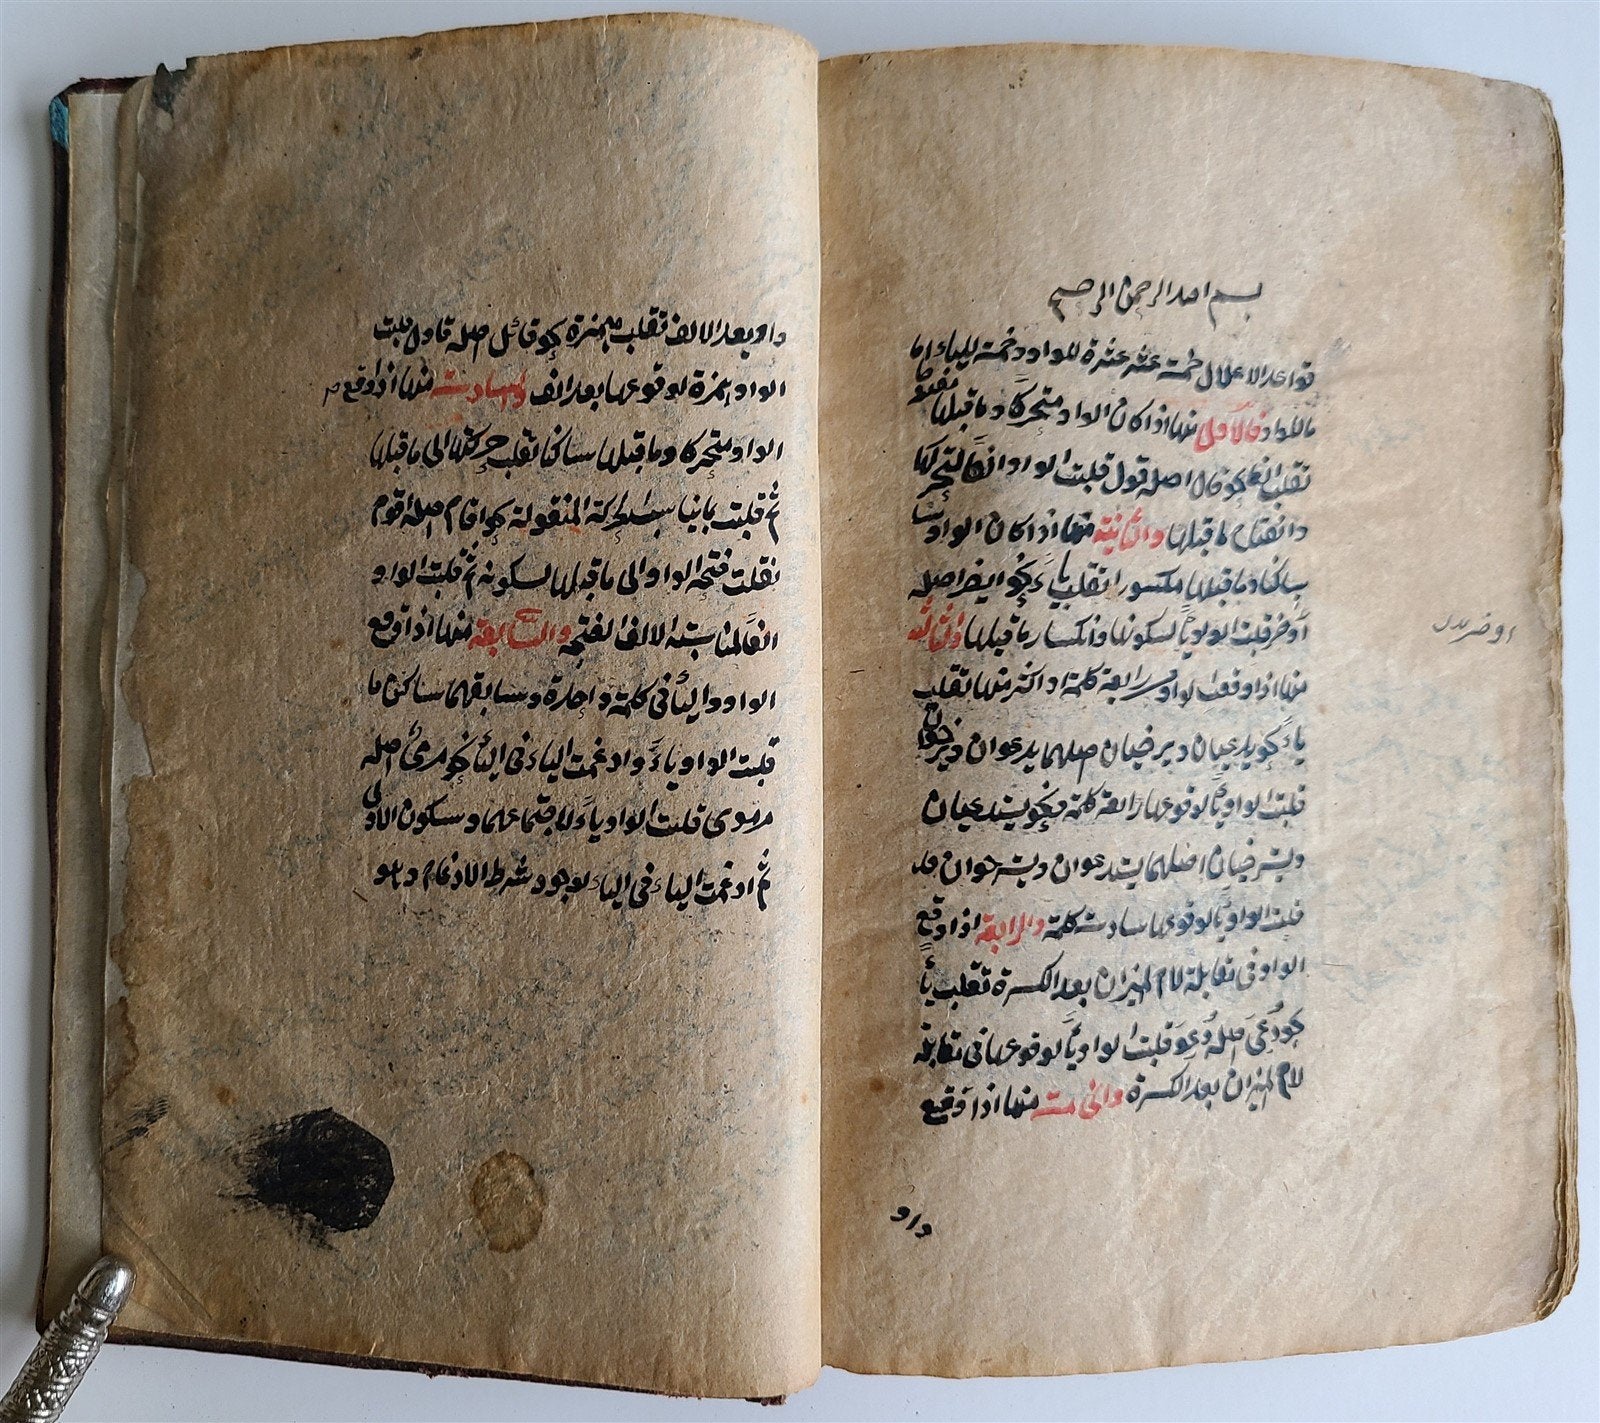 بسم الله الرحمن الرحيم
قواعد الاعلال خمسة عشر عشرة للواو وخمسة للياء اما
ماللواو فالاول منها اذا كان الواو متحركا وما قبلها مفتوحا
تقلب الفا نحو قال اصله قول قلبت الواو الفا لتحركها
وانفتاح ما قبلها والثانية منها اذا كان الواو
ساكنا وما قبلها مكسورا تقلب ياء نحو ايضر اصله
اوضر قلبت الواو ياء لسكونها وانكسار ما قبلها والثالثة
منها اذا وقعت الواو رابعة كلمة او اكثر منها تقلب
ياء نحو يدعيان ويرضيان اصلهما يدعوان ويرضوان
قلبت الواو ياء لوقوعها رابعة كلمة ونحو يستدعيان
ويسترضيان اصلهما يستدعوان ويسترضوان
قلبت الواو ياء لوقوعها سادسة كلمة والرابعة اذا وقع
الواو في مقابلة لام الميزان بعد الكسرة تقلب ياء
نحو دُعِيَ اصله دُعِوَ قلبت الواو ياء لوقوعها في مقابلة
لام الميزان بعد الكسرة والخامسة منها اذا وقع
واو
واو بعد الالف تقلب همزة نحو قائل اصله قاول قلبت
الواو همزة لوقوعها بعد الف والسادسة منها اذا وقع
الواو متحركا وما قبلها ساكنا تقلب حركتها الى ما قبلها
ثم قلبت الحركة المنقولة نحو اقام اصله اقوم
نقلت فتحة الواو الى ما قبلها لسكونه ثم قلبت الواو
الفا لمناسبته الالف الفتحة والسابعة منها اذا وقع
الواو والياء في كلمة واحدة وسابقهما ساكن
قلبت الواو ياء وادغمت الياء في الياء نحو مرمي اصله
مرموي قلبت الواو ياء لاجتماعهما وسكون الاولى
ثم ادغمت الياء في الياء لوجود شرط الادغام وهو